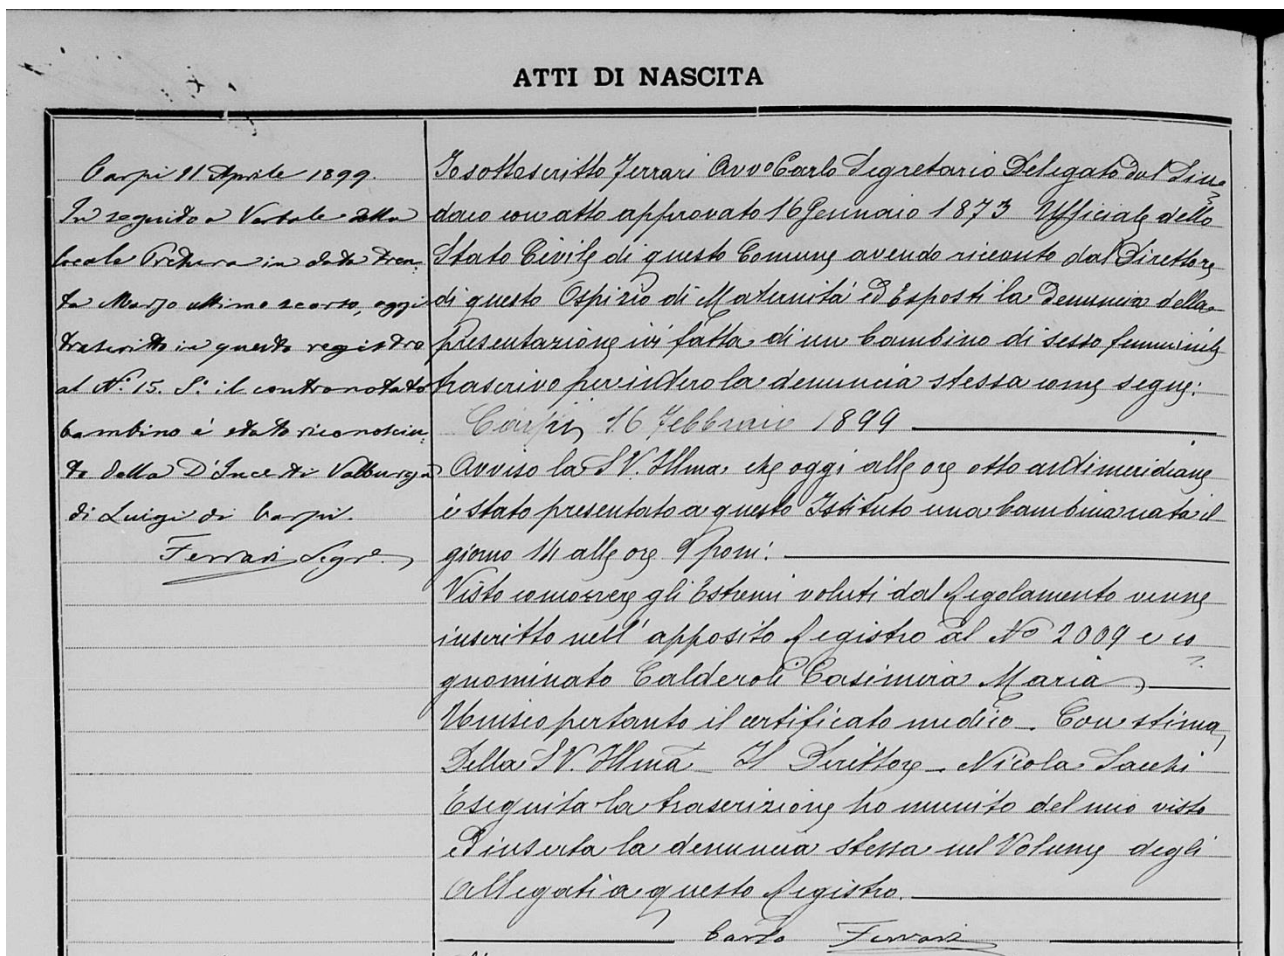 ATTI DI NASCITA
Carpi 11 Aprile 1899.
In seguito a Verbale della
locale Pretura in data tren-
ta Marzo ultimo scorso, oggi
trascritto in questo registro
al N.° 15. S.a il contronotato
bambino è stato riconosciu-
to dalla D'Incerti Valburga
di Luigi di Carpi.
Ferrari Segr.o
Io sottoscritto Ferrari Avv.o Carlo Segretario Delegato dal Sin-
daco con atto approvato 16 Gennaio 1873 Ufficiale dello
Stato Civile di questo Comune avendo ricevuto dal Direttore
di questo Ospizio di Maternità ed Esposti la denuncia della
Presentazione ivi fatta di un bambino di sesso femminile
trascrivo per intero la denuncia stessa come segue:
Carpi, 16 Febbraio 1899
Avviso la S.V. Illma. che oggi alle ore otto antimeridiane
è stato presentato a questo Istituto una bambina nata il
giorno 14 alle ore 9 pom:
Visto concorrere gli Estremi voluti dal Regolamento venne
inscritto nell'apposito Registro al No 2009 e co-
gnominato Calderoli Casimira Maria
Unisco pertanto il certificato medico. Con stima
Della S.V. Illma Il Direttore Nicola Sacchi
Eseguita la trascrizione ho munito del mio visto
ed inserta la denuncia stessa nel Volume degli
Allegati a questo Registro.
Carlo Ferrari